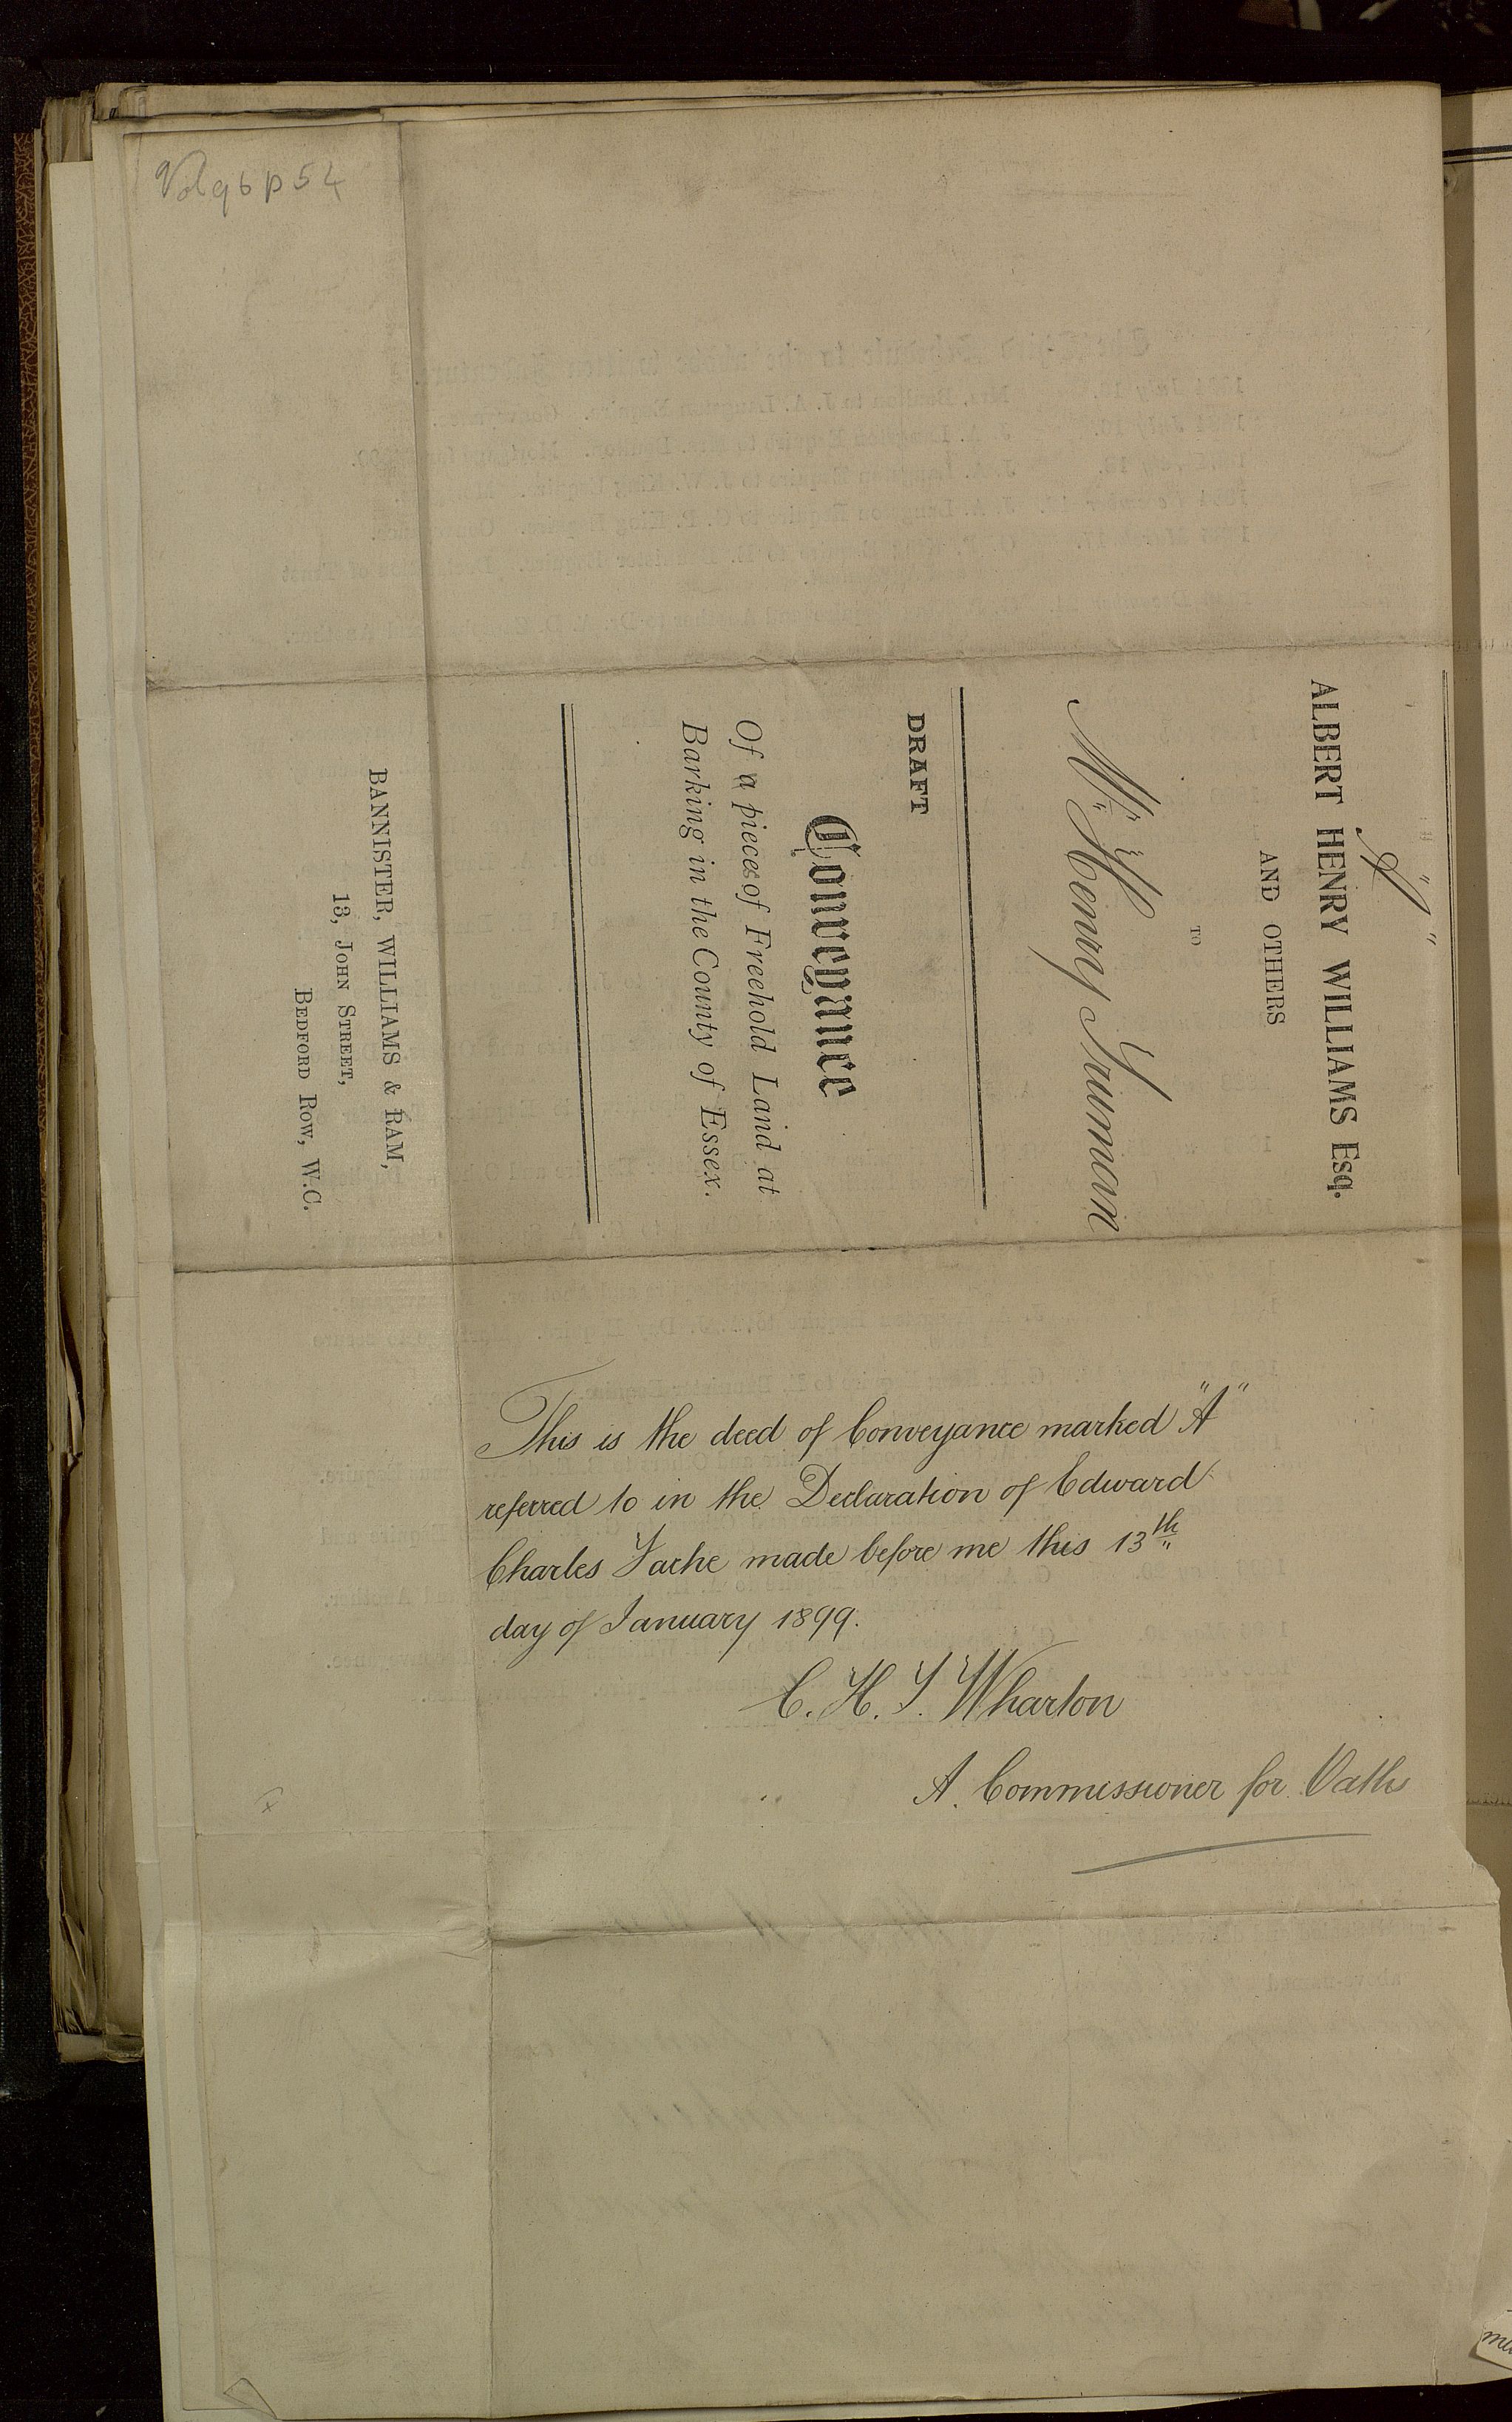 Vol 96 p 54
"A"
ALBERT HENRY WILLIAMS Esq.
AND OTHERS
TO
Mr. Henry Trueman
DRAFT
Conveyance
Of a pieces of Freehold Land at
Barking in the County of Essex.
BANNISTER, WILLIAMS & RAM,
13, JOHN STREET,
BEDFORD ROW, W.C.
This is the deed of Conveyance marked "A"
referred to in the Declaration of Edward
Charles made before me this 13th
day of January 1899.
C. H. T. Wharton
A Commissioner for Oaths